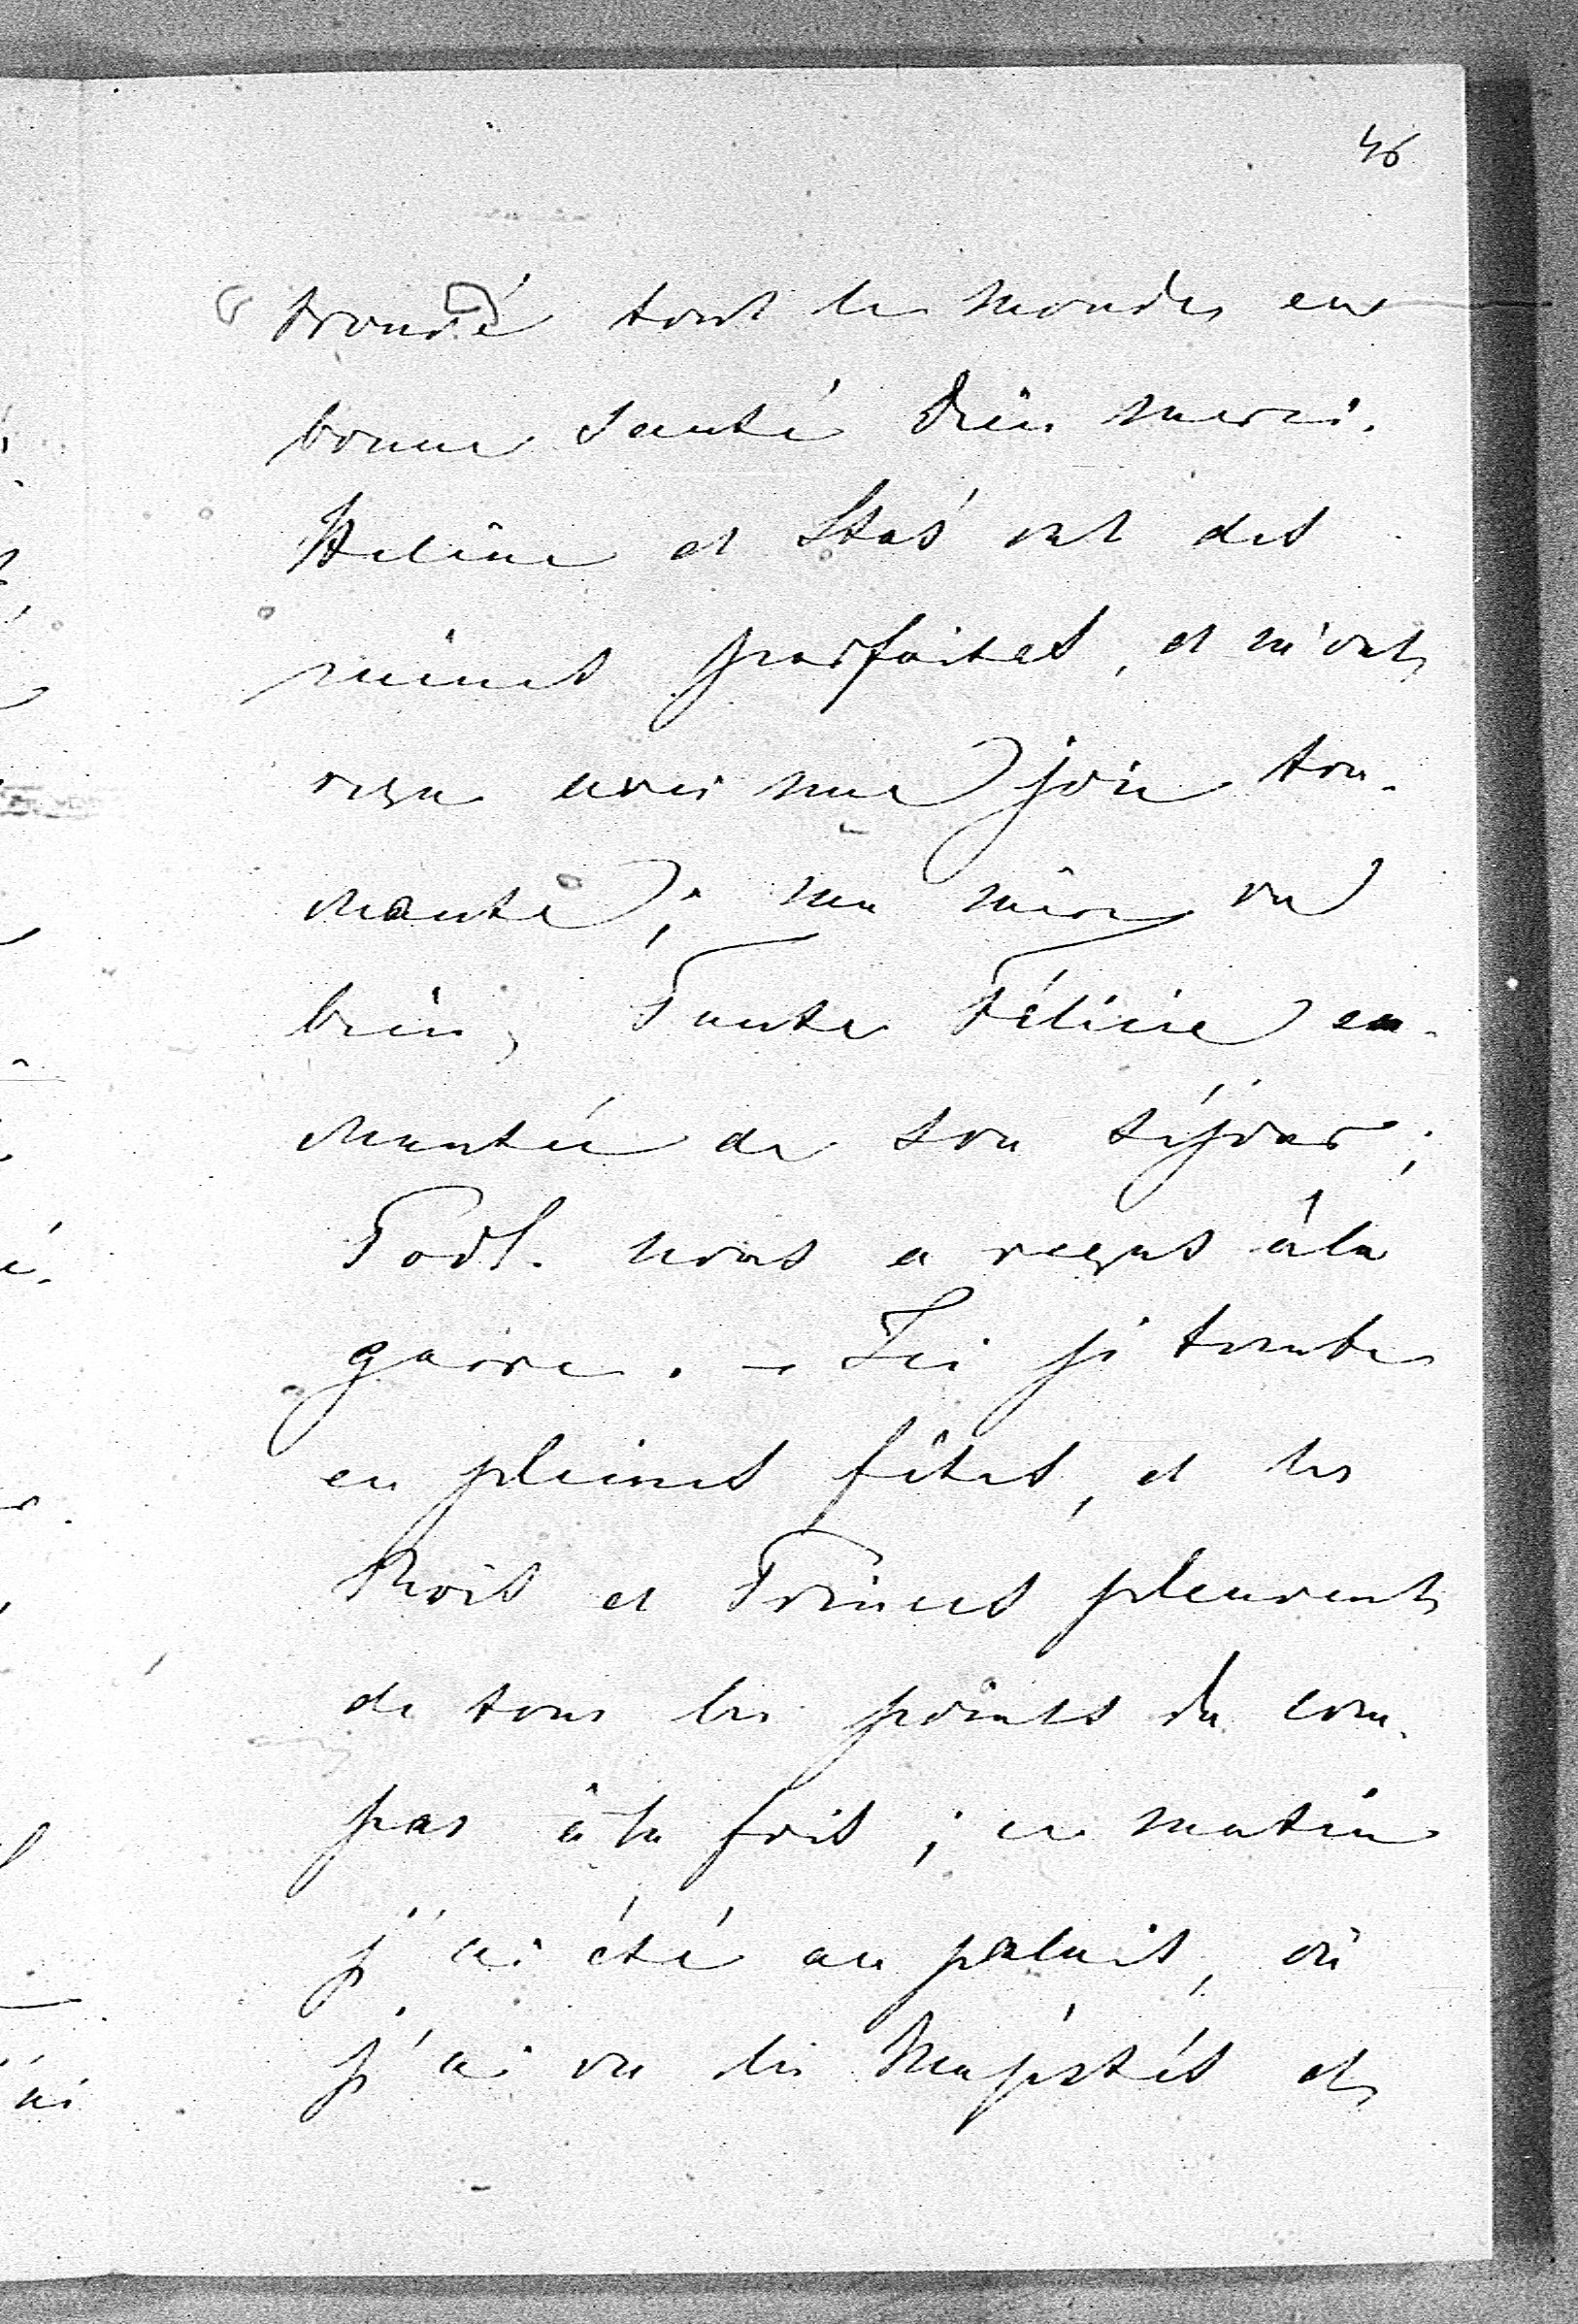 46
trouvé tout le monde en
bonne santé Dieu merci.
Helène et Staś ont des
mines parfaites, et m'ont
reçu avec une joie tou-
chante; ma mère va
bien, Tante Félicie en-
chantée de son séjour;
nous a reçus à la
gare. — Ici je tombe
en pleines fêtes, et les
Rois et Princes pleuvent
de tous les points du com-
pas à la fois; ce matin
j'ai été au palais, où
j'ai vu les Majestés et